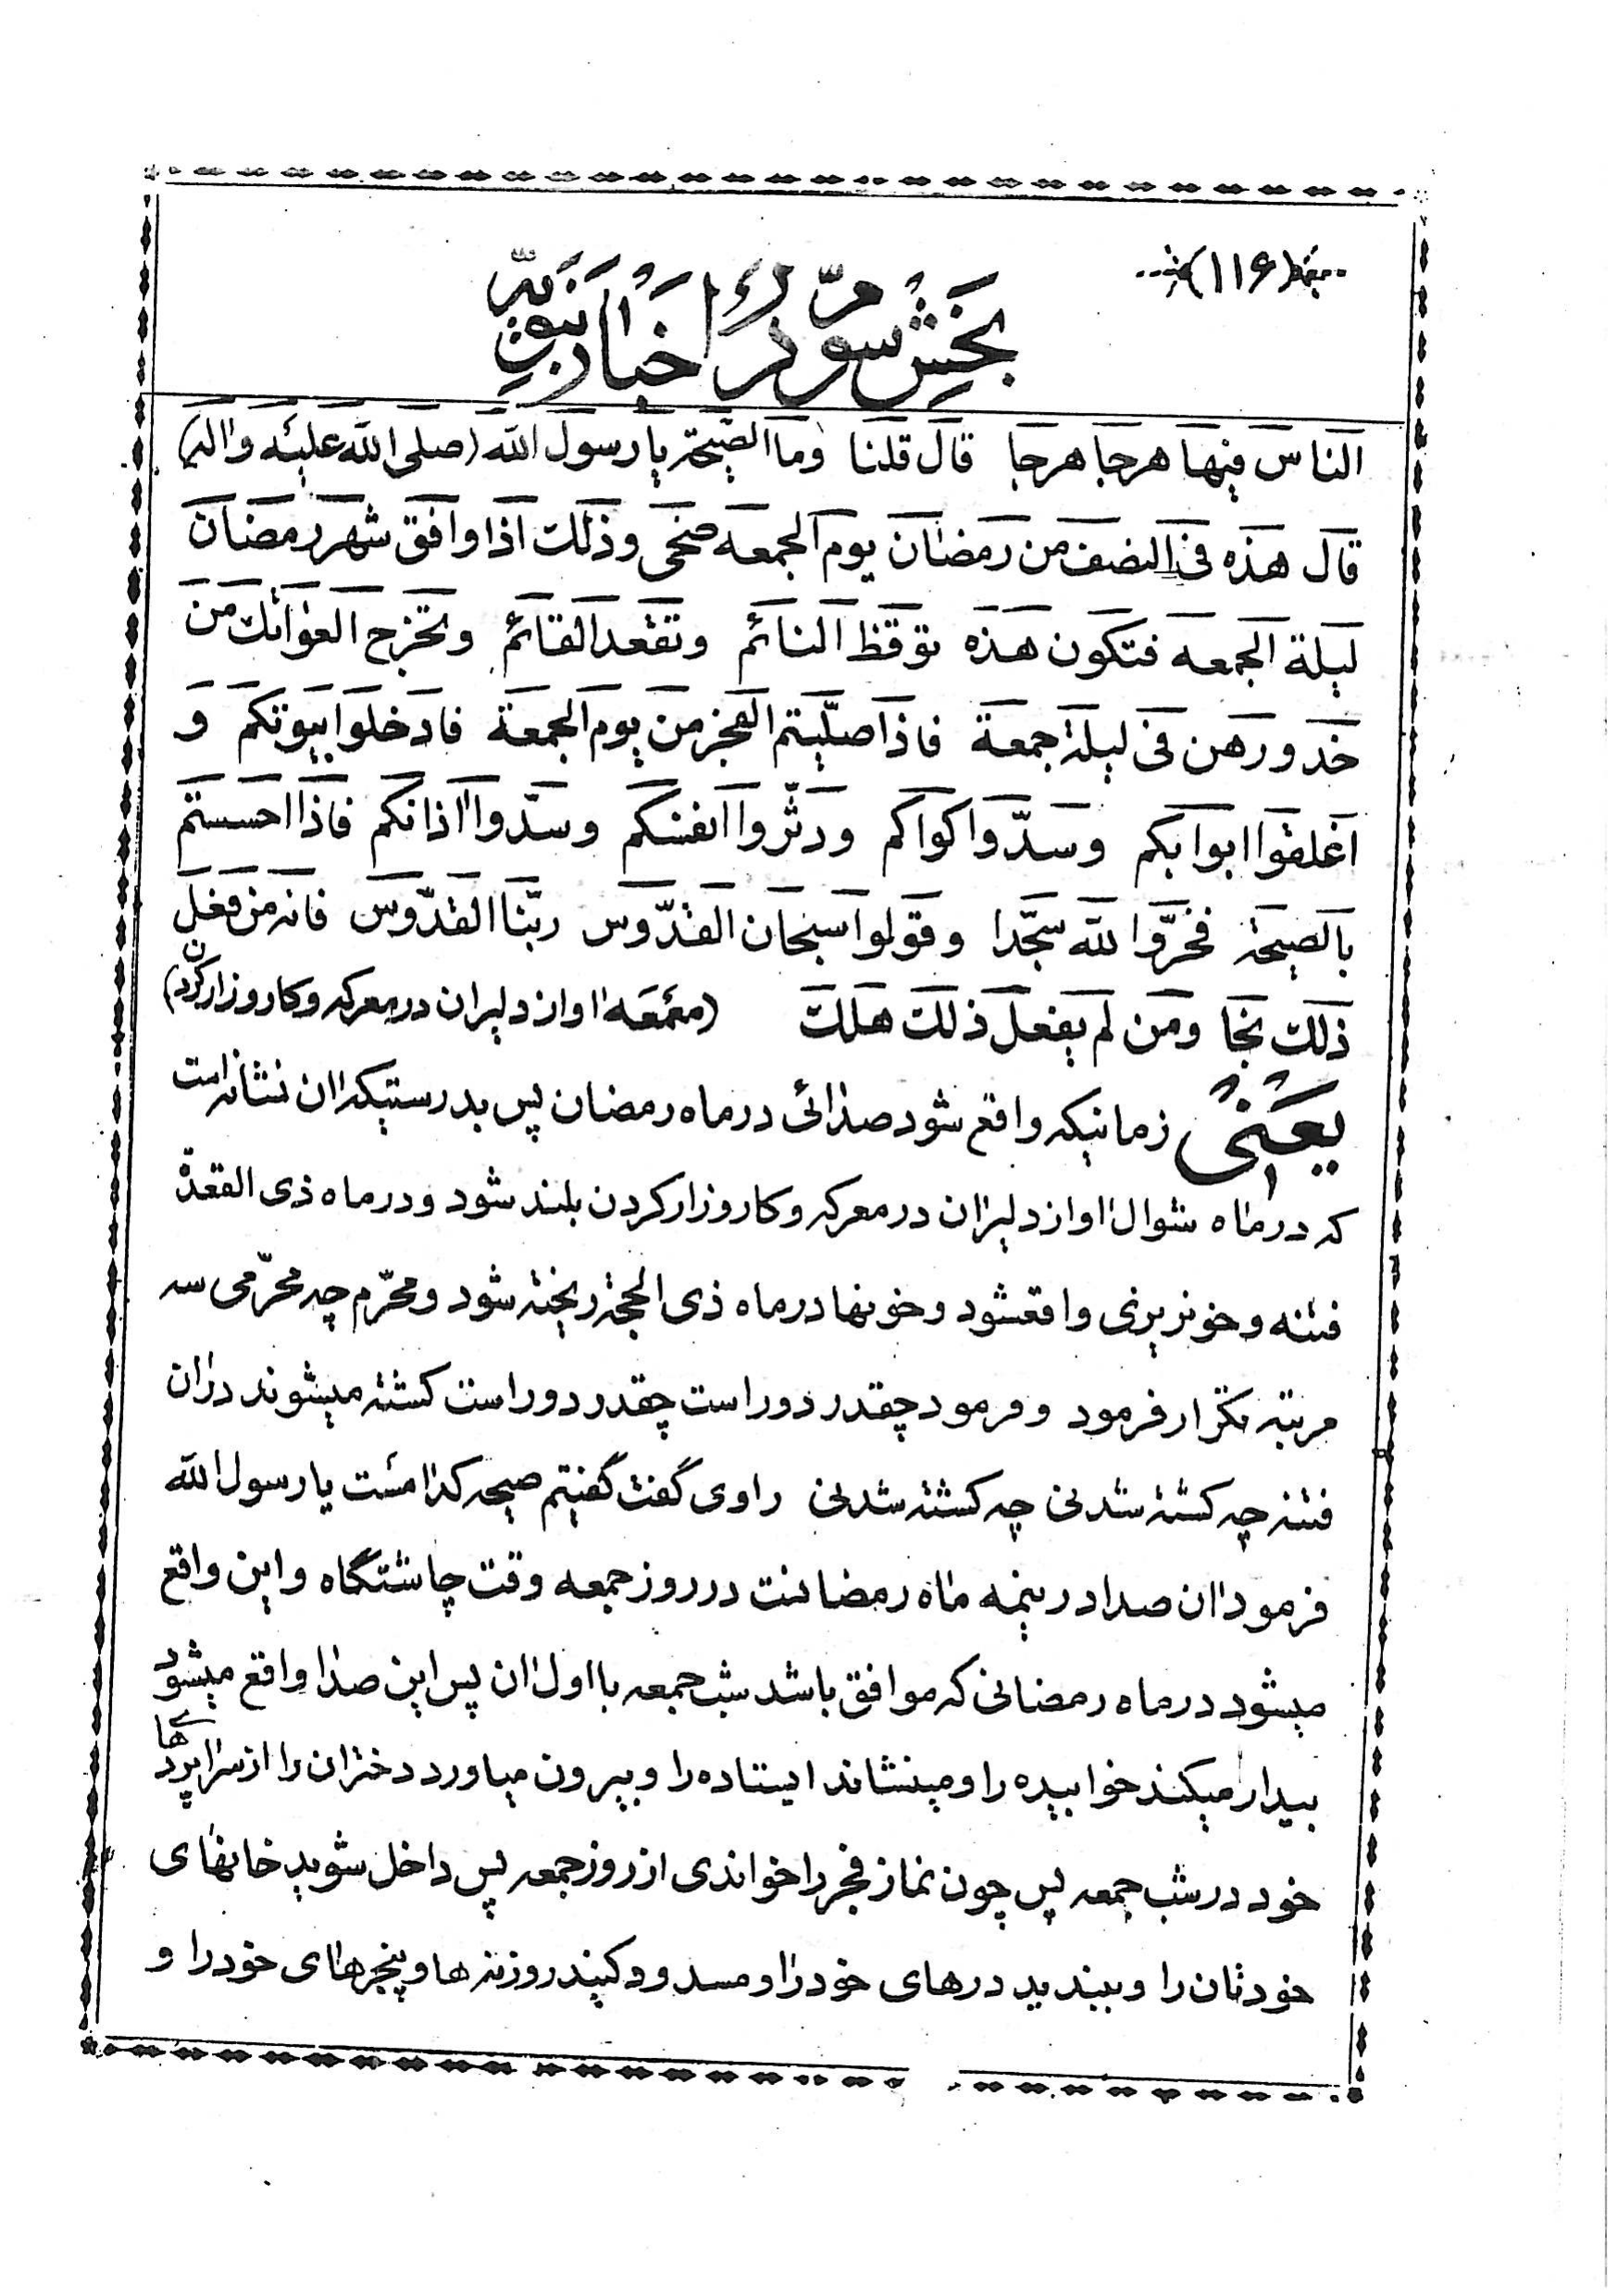 (۱۱۶)
بخش سوّم در اخبار نبویّه
الناس فیها هرجا هرجا قال قلنا وما الصیحة یا رسول الله (صلی الله علیه واله)
قال هذه فی النصف من رمضان یوم الجمعه ضحی وذلک اذا وافق شهر رمضان
لیلة الجمعه فتکون هذه توقظ النائم وتقعد القائم وتخرج العواتک من
خدورهن فی لیلة جمعة فاذا صلّیتم الفجر من یوم الجمعة فادخلوا بیوتکم و
اغلقوا ابوابکم وسدّوا کواکم ودثّروا انفسکم وسدّوا اذانکم فاذا احسستم
بالصیحة فخرّوا لله سجّدا وقولوا سبحان القدّوس ربّنا القدّوس فانه من فعل
ذلک نجا ومن لم یفعل ذلک هلک (معمعه اواز دلیران در معرکه وکارو زار کردن)
یعنی زمانیکه واقع شود صدائی در ماه رمضان پس بدرستیکه ان نشانه است
که در ماه شوال اواز دلیران در معرکه وکارو زار کردن بلند شود ودر ماه ذی القعدة
فتنه وخونریزی واقعشود وخونها در ماه ذی الحجة ریخته شود ومحرّم چه محرّمی سه
مرتبه تکرار فرمود وفرمود چقدر دور است چقدر دور است کشته میشوند دران
فتنه چه کشته شدنی چه کشته شدنی راوی گفت گفتیم صیحه کدامست یا رسول الله
فرمود ان صدا در نیمه ماه رمضانست در روز جمعه وقت چاشتگاه واین واقع
میشود در ماه رمضانی که موافق باشد شب جمعه با اول ان پس این صدا واقع میشود
بیدار میکند خوابیده را ومینشاند ایستاده را وبیرون میاورد دختران را از سراپرده های
خود در شب جمعه پس چون نماز فجر را خواندی از روز جمعه پس داخل شوید خانهای
خودتان را وببندید درهای خود را ومسدود کنید روزنه ها وپنجرهای خود را و